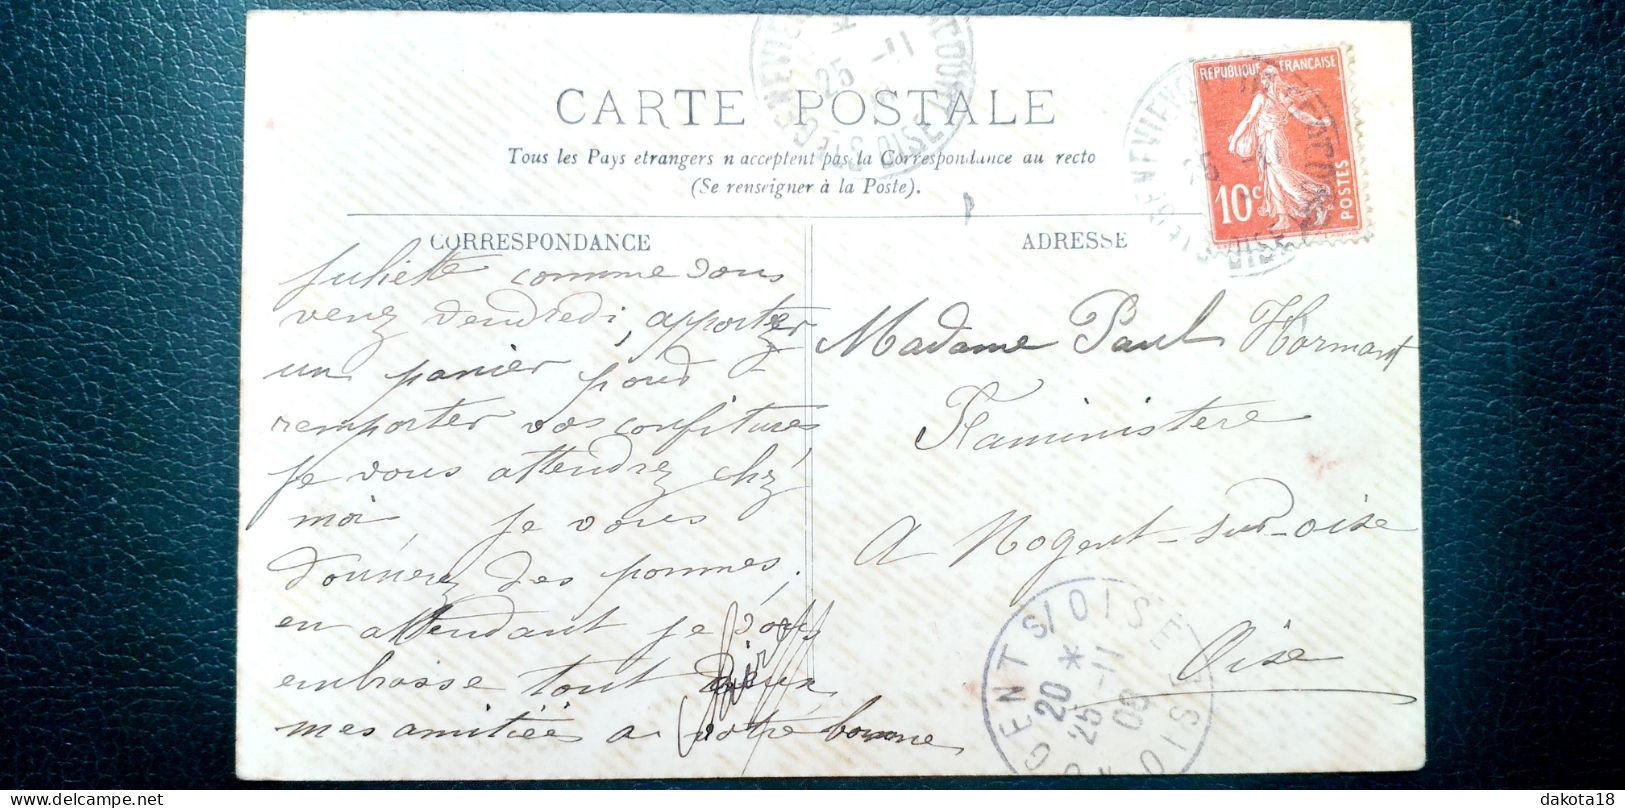 CARTE POSTALE
Tous les Pays etrangers n acceptent pas la Correspondance au recto
(Se renseigner à la Poste).
CORRESPONDANCE
Juliette comme vous
venez vendredi, apportez
un panier pour
remporter vos confitures
je vous attendrez chez
moi, je vous
donnerez des pommes.
en attendant je vous
embrasse tout deux
mes amitiées a votre bonne
ADRESSE
Madame Paul Hormant
Flaministère
A Nogent-sur-oise
Oise
REPUBLIQUE FRANÇAISE
10c
POSTES
25 -11
OISE
NOGENT S/ OISE
20 *
25 -11
08
OISE
dakota18